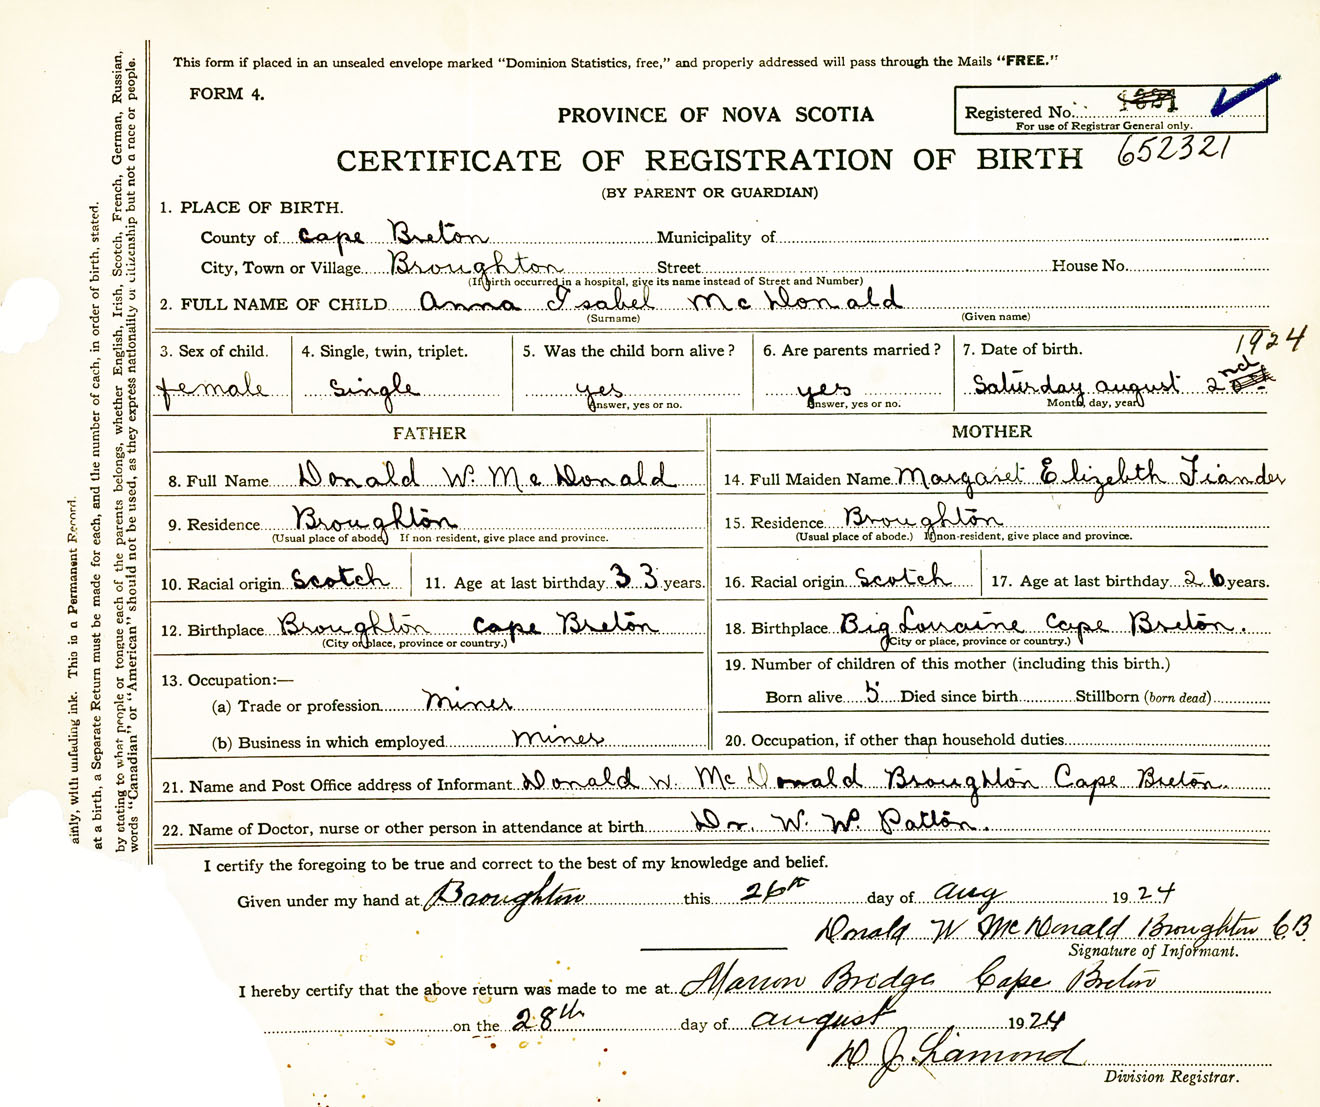 This form if placed in an unsealed envelope marked "Dominion Statistics, free," and properly addressed will pass through the Mails "FREE."
FORM 4.
PROVINCE OF NOVA SCOTIA
Registered No.
For use of Registrar General only.
652321
CERTIFICATE OF REGISTRATION OF BIRTH
(BY PARENT OR GUARDIAN)
1. PLACE OF BIRTH.
County of Cape Breton Municipality of
City, Town or Village Broughton Street House No.
(If birth occurred in a hospital, give its name instead of Street and Number)
2. FULL NAME OF CHILD Anna Isabel McDonald
(Surname) (Given name)
3. Sex of child. 4. Single, twin, triplet. 5. Was the child born alive? 6. Are parents married? 7. Date of birth. 1924
female single yes yes Saturday August 2nd
Answer, yes or no. Answer, yes or no. Month, day, year
FATHER MOTHER
8. Full Name Donald W. McDonald 14. Full Maiden Name Margaret Elizebth Fiander
9. Residence Broughton 15. Residence Broughton
(Usual place of abode) If non resident, give place and province. (Usual place of abode.) If non-resident, give place and province.
10. Racial origin Scotch 11. Age at last birthday 33 years. 16. Racial origin Scotch 17. Age at last birthday 26 years.
12. Birthplace Broughton Cape Breton 18. Birthplace Big Lorraine Cape Breton.
(City or place, province or country.) (City or place, province or country.)
13. Occupation:— 19. Number of children of this mother (including this birth.)
(a) Trade or profession Miner Born alive 5 Died since birth Stillborn (born dead)
(b) Business in which employed Miner 20. Occupation, if other than household duties
21. Name and Post Office address of Informant Donald W. McDonald Broughton Cape Breton.
22. Name of Doctor, nurse or other person in attendance at birth Dr. W. W. Patton.
I certify the foregoing to be true and correct to the best of my knowledge and belief.
Given under my hand at Broughton this 26th day of Aug 1924
Donald W McDonald Broughton C.B.
Signature of Informant.
I hereby certify that the above return was made to me at Marion Bridge Cape Breton
on the 28th day of August 1924
D J. Lamond
Division Registrar.
ainly, with unfading ink. This is a Permanent Record.
at a birth, a Separate Return must be made for each, and the number of each, in order of birth, stated.
by stating to what people or tongue each of the parents belongs, whether English, Irish, Scotch, French, German, Russian,
words "Canadian" or "American" should not be used, as they express nationality or citizenship but not a race or people.